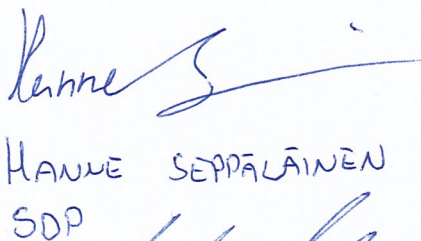 Hanne
HANNE SEPPÄLÄINEN
SDP